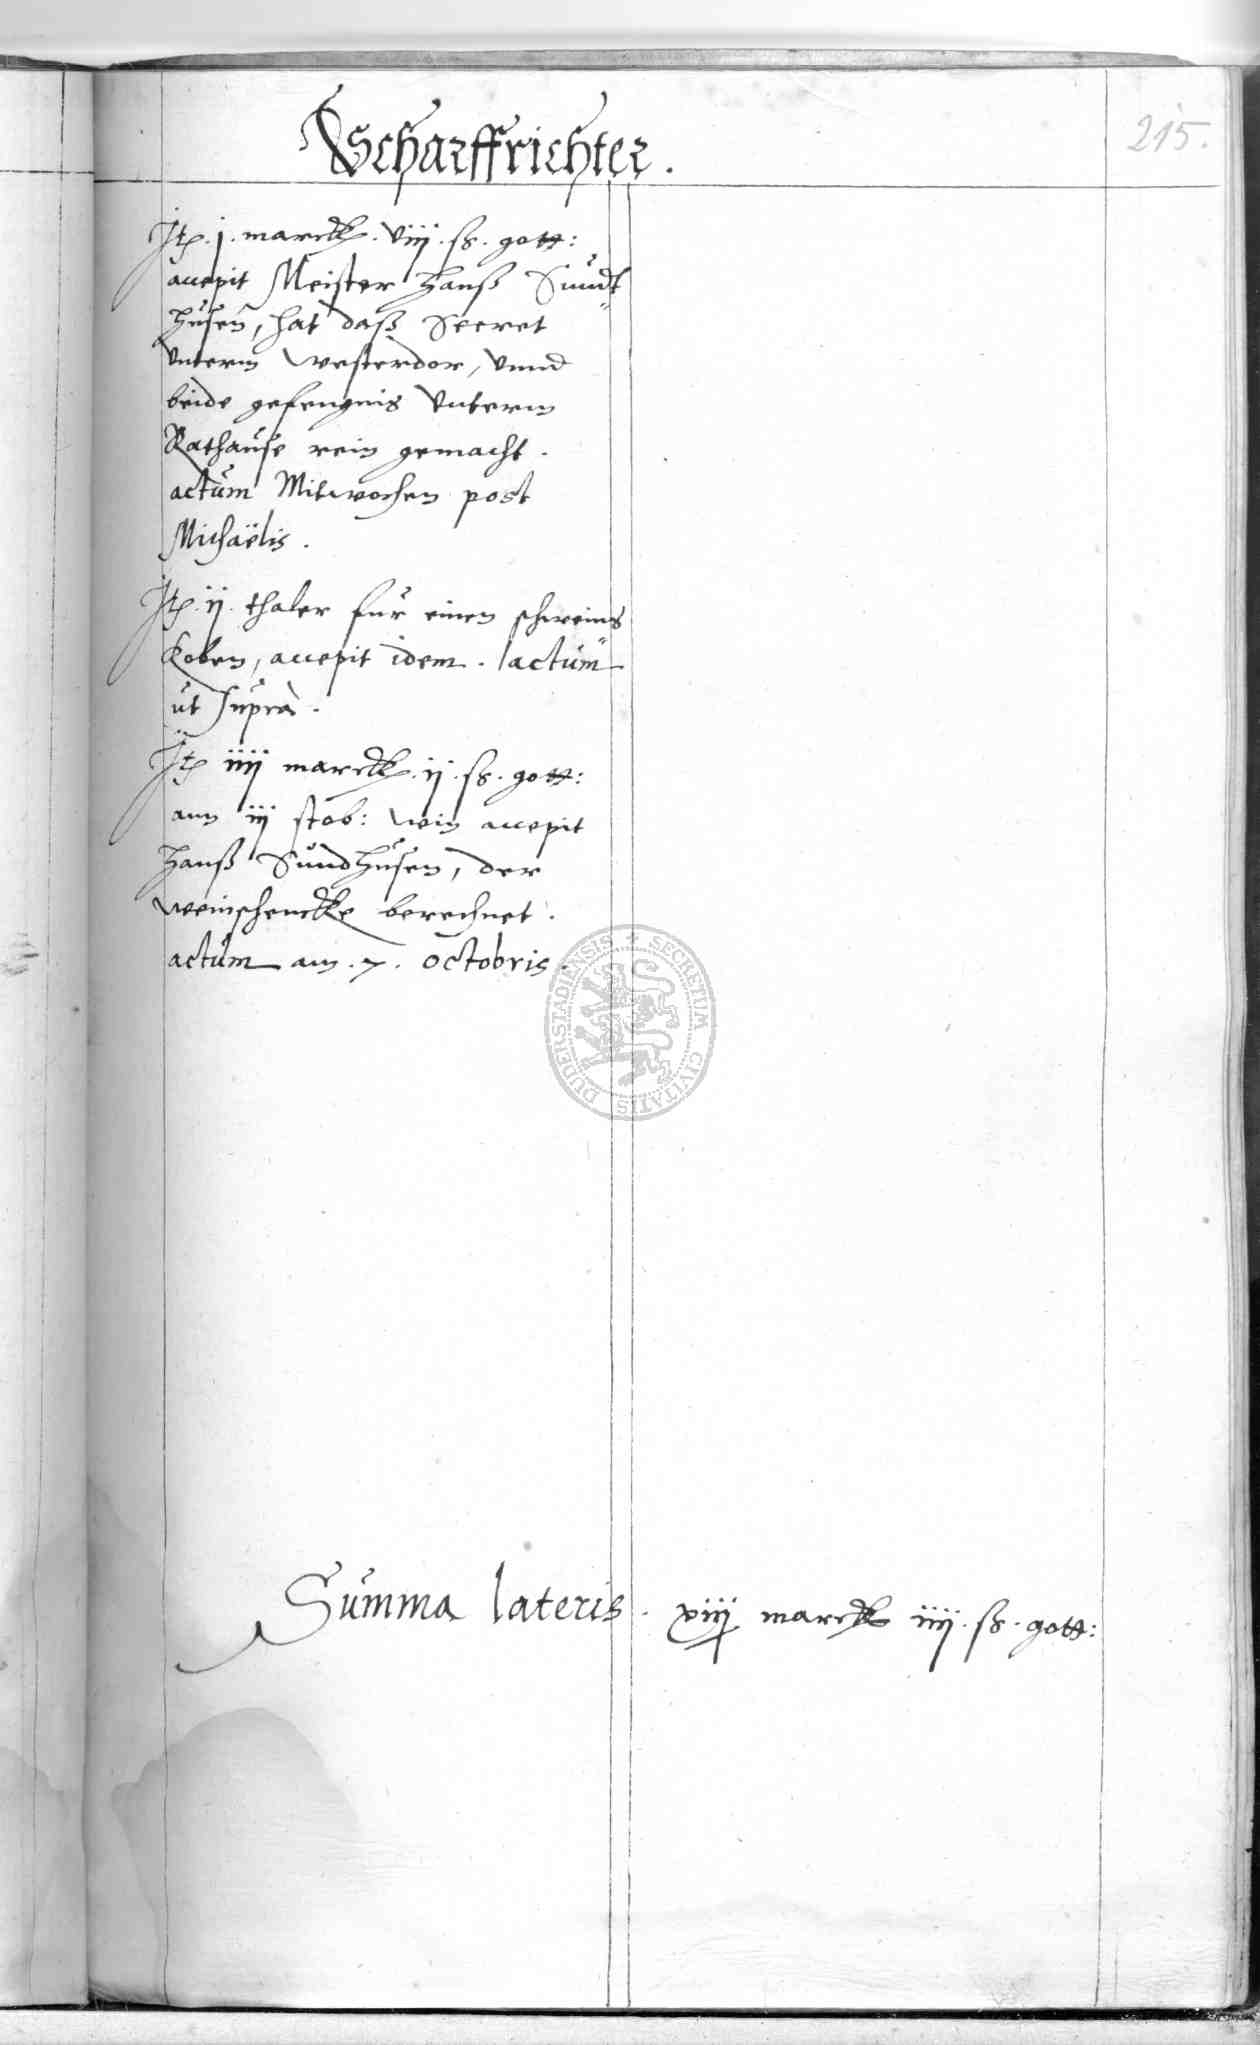 Scharffrichter.
215.
Itē. j. marckk. viiij. ss. gott:
accepit Meister Hanß Sundt
husen, hat daß Secret
unterm Westerdor, unnd
beide gefengnis unterm
Rathause rein gemacht.
actum Mitwochen post
Michaëlis.
Itē. ij. thaler fur einen schweins
koben, accepit idem. actum
ut suprà.
Itē iiij marckk. ij. ss. gott:
ann iij stob: wein accepit
Hanß Sundhusen, der
weinschenckke berechnet.
actum am. 7. octobris.
SECRETUM CIVITATIS DUDERSTADIENSIS
Summa lateris. viiij marckk iiij. ss. gott: